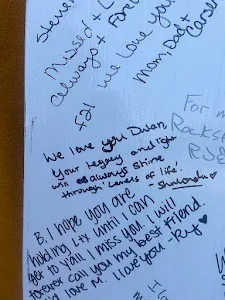 Steve
Missed + L
always + Fore
F21 We love you
Mom, Dad +
Carser
For m
Rocksh
RJE
We love you Dwan,
Your legacy and light
will always shine
through 'Lenses of life'.
B. I hope you are
holding L+x until I can
get to y'all I miss you I will
forever call you my best friend.
and love M. I love you - Ry